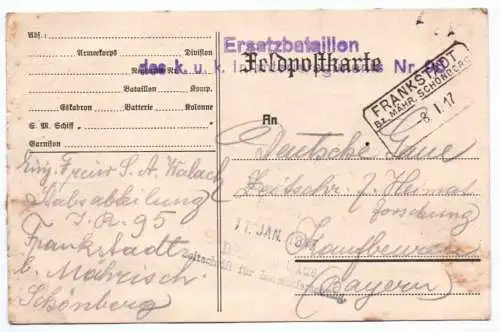 Abs.:
Armeekorps Division
Regiment Nr.
Bataillon Komp.
Eskadron Batterie Kolonne
S. M. Schiff
Garnison
Ersatzbataillon
des k. u. k. Nr.
Feldpostkarte
FRANKSTADT
Bz. MÄHR. SCHÖNBERG
8 I. 17
An
Deutsche Gaue
Zeitschr. f. Heimat
forschung
Kaufbeuren
Bayern
Einj. Freiw S. A. Walach
Stabsabteilung
I. R. 95
Frankstadt
b. Mährisch
Schönberg
11. JAN. 1917
Zeitschrift für Heimatforschung